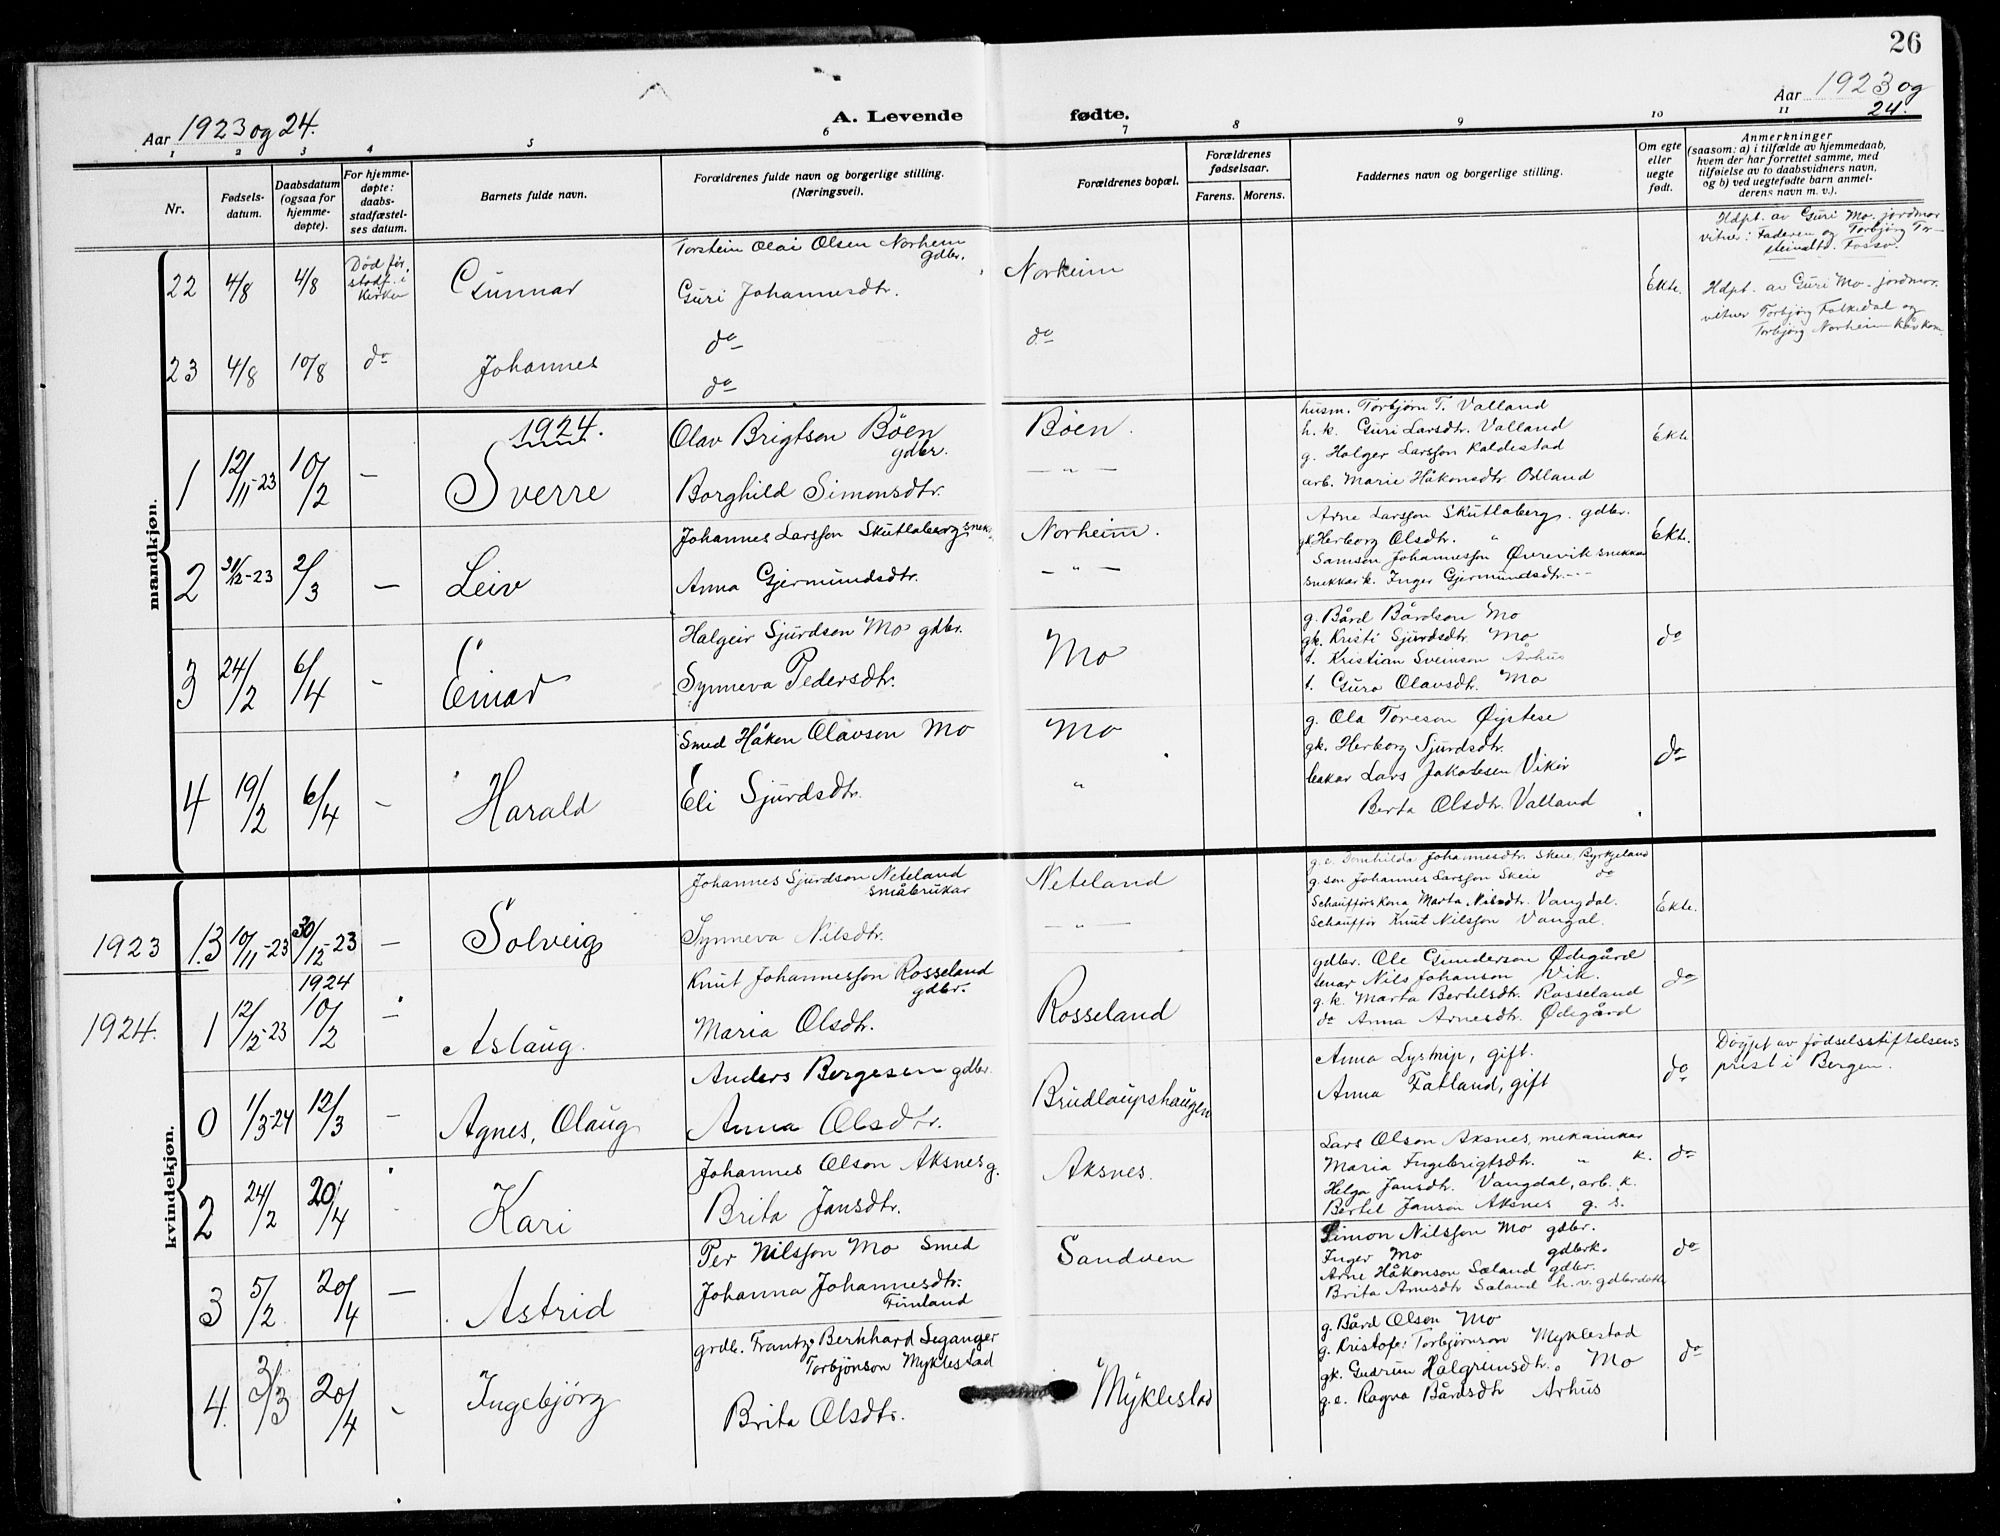 26
Aar 1923 og 24.
A. Levende fødte.
Aar 1923 og 24.
1 2 3 4 5 6 7 8 9 10 11
Nr.
Fødsels-
datum.
Daabsdatum
(ogsaa for
hjemme-
døpte).
For hjemme-
døpte:
daabs-
stadfæstel-
ses datum.
Barnets fulde navn.
Forældrenes fulde navn og borgerlige stilling.
(Næringsvei).
Forældrenes bopæl.
Forældrenes
fødselsaar.
Farens. Morens.
Faddernes navn og borgerlige stilling.
Om egte
eller
uegte
født.
Anmerkninger
(saasom: a) i tilfælde av hjemmedaab,
hvem der har forrettet samme, med
tilføielse av to daabsvidners navn,
og b) ved uegtefødte barn anmel-
derens navn m. v.).
mandkjøn.
22 4/8 4/8
Død før
stadf. i
Kirken
Gunnar
Torstein Olai Olsen Norheim
gdbr.
Guri Johannesdtr.
Norheim
Ekte.
Hdpt. av Guri Mo. jordmor
vitner: Faderen og Torbjörg Tor-
steinsdtr. Fosso.
23 4/8 10/8 do
Johannes
do
do
do
Hdpt. av Guri Mo. jordmor.
vitner Torbjörg Falkedal og
Torbjörg Norheim Kåvkom.
1924.
1 12/11-23 10/2 —
Sverre
Olav Brigtson Böen
gdbr.
Borghild Simonsdtr.
Böen.
— " —
husm. Torbjörn T. Valland
h. k. Guri Larsdtr. Valland
g. Holger Larsson Kaldestad
arb. Marie Håkonsdtr Odland
Ekte
2 31/12-23 2/3 —
Leiv
Johannes Larsson Skutlaberg snek.
Anna Gjermundsdtr.
Norheim.
— " —
Arne Larsson Skutlaberg. gdbr.
gk. Herborg Olsdtr. "
Samson Johannesson Øvrevik snekkar
snekkark. Inger Gjermundsdtr. --
Ekte.
3 24/2 6/4 -
Einar
Halgeir Sjurdson Mo gdbr.
Synneva Pedersdtr.
Mo
g. Bård Bårdson Mo
gk. Kristi Sjurdsdtr Mo
t. Kristian Sveinson Århus
t. Guro Olavsdtr. Mo
do
4 19/2 6/4 -
Harald
Smed Håkon Olavson Mo
Eli Sjurdsdtr.
Mo
"
g. Ola Toreson Øystese
gk. Herborg Sjurdsdtr.
Lars Jakobsen Vikør
Berta Olsdtr. Valland
do
kvindekjøn.
1923 13 10/11-23 30/12-23 —
Solveig
Johannes Sjurdson Neteland
småbrukar
Synneva Nilsdtr.
Neteland
— " —
g. e. Domhilda Johannesdtr. Skeie, Byrkjeland
g. son Johannes Larsson Skeie do
Schauffórs kona Marta Nilsdtr. Vangdal.
Schauffór Knut Nilsson Vangal.
Ekte.
1924
1924. 1 12/12-23 10/2 —
Aslaug.
Knut Johannesson Rosseland
gdbr.
Maria Olsdtr.
Rosseland
gdbr. Ole Gunderson Ødegård
Nils Johanson Vik.
g. k. Marta Bertilsdtr. Rosseland
do Anna Arnesdtr. Ødegård
do
0 1/3-24 12/3 —
Agnes, Olaug
Anders Bergesen gdbr.
Anna Olsdtr.
Brudlaupshaugen
Anna Lystrup, gift.
Anna Fatland, gift
do
Döypt av fødselsstiftelsens
prest i Bergen.
2 24/2 20/4 -
Kari
Johannes Olson Aksnes g.
Brita Jansdtr.
Aksnes.
Lars Olson Aksnes, mekanikar
Maria Ingebrigtsdtr. " k.
Helga Jansdtr. Vangdal, arb. k.
Bertel Janson Aksnes g. s.
do
3 5/2 20/4 —
Astrid
Per Nilsson Mo Smed
Johanna Johannesdtr.
Finland
Sandven
Simon Nilsson Mo gdbr.
Inger Mo gdbrk.
Arne Håkonson Sæland gdbr.
Brita Arnesdtr Sæland h. v. gdbrdotter
do
4. 2/3 20/4 -
Ingebjörg
grdb. Frantz Bernhard Seganger
Torbjönson Myklestad
Brita Olsdtr.
Myklestad
g. Bård Olson Mo
g. Kristofer Torbjörnson Myklestad
gk. Gudrun Halgrimsdtr. Mo
g. e. Ragna Bårdsdtr Århus
do